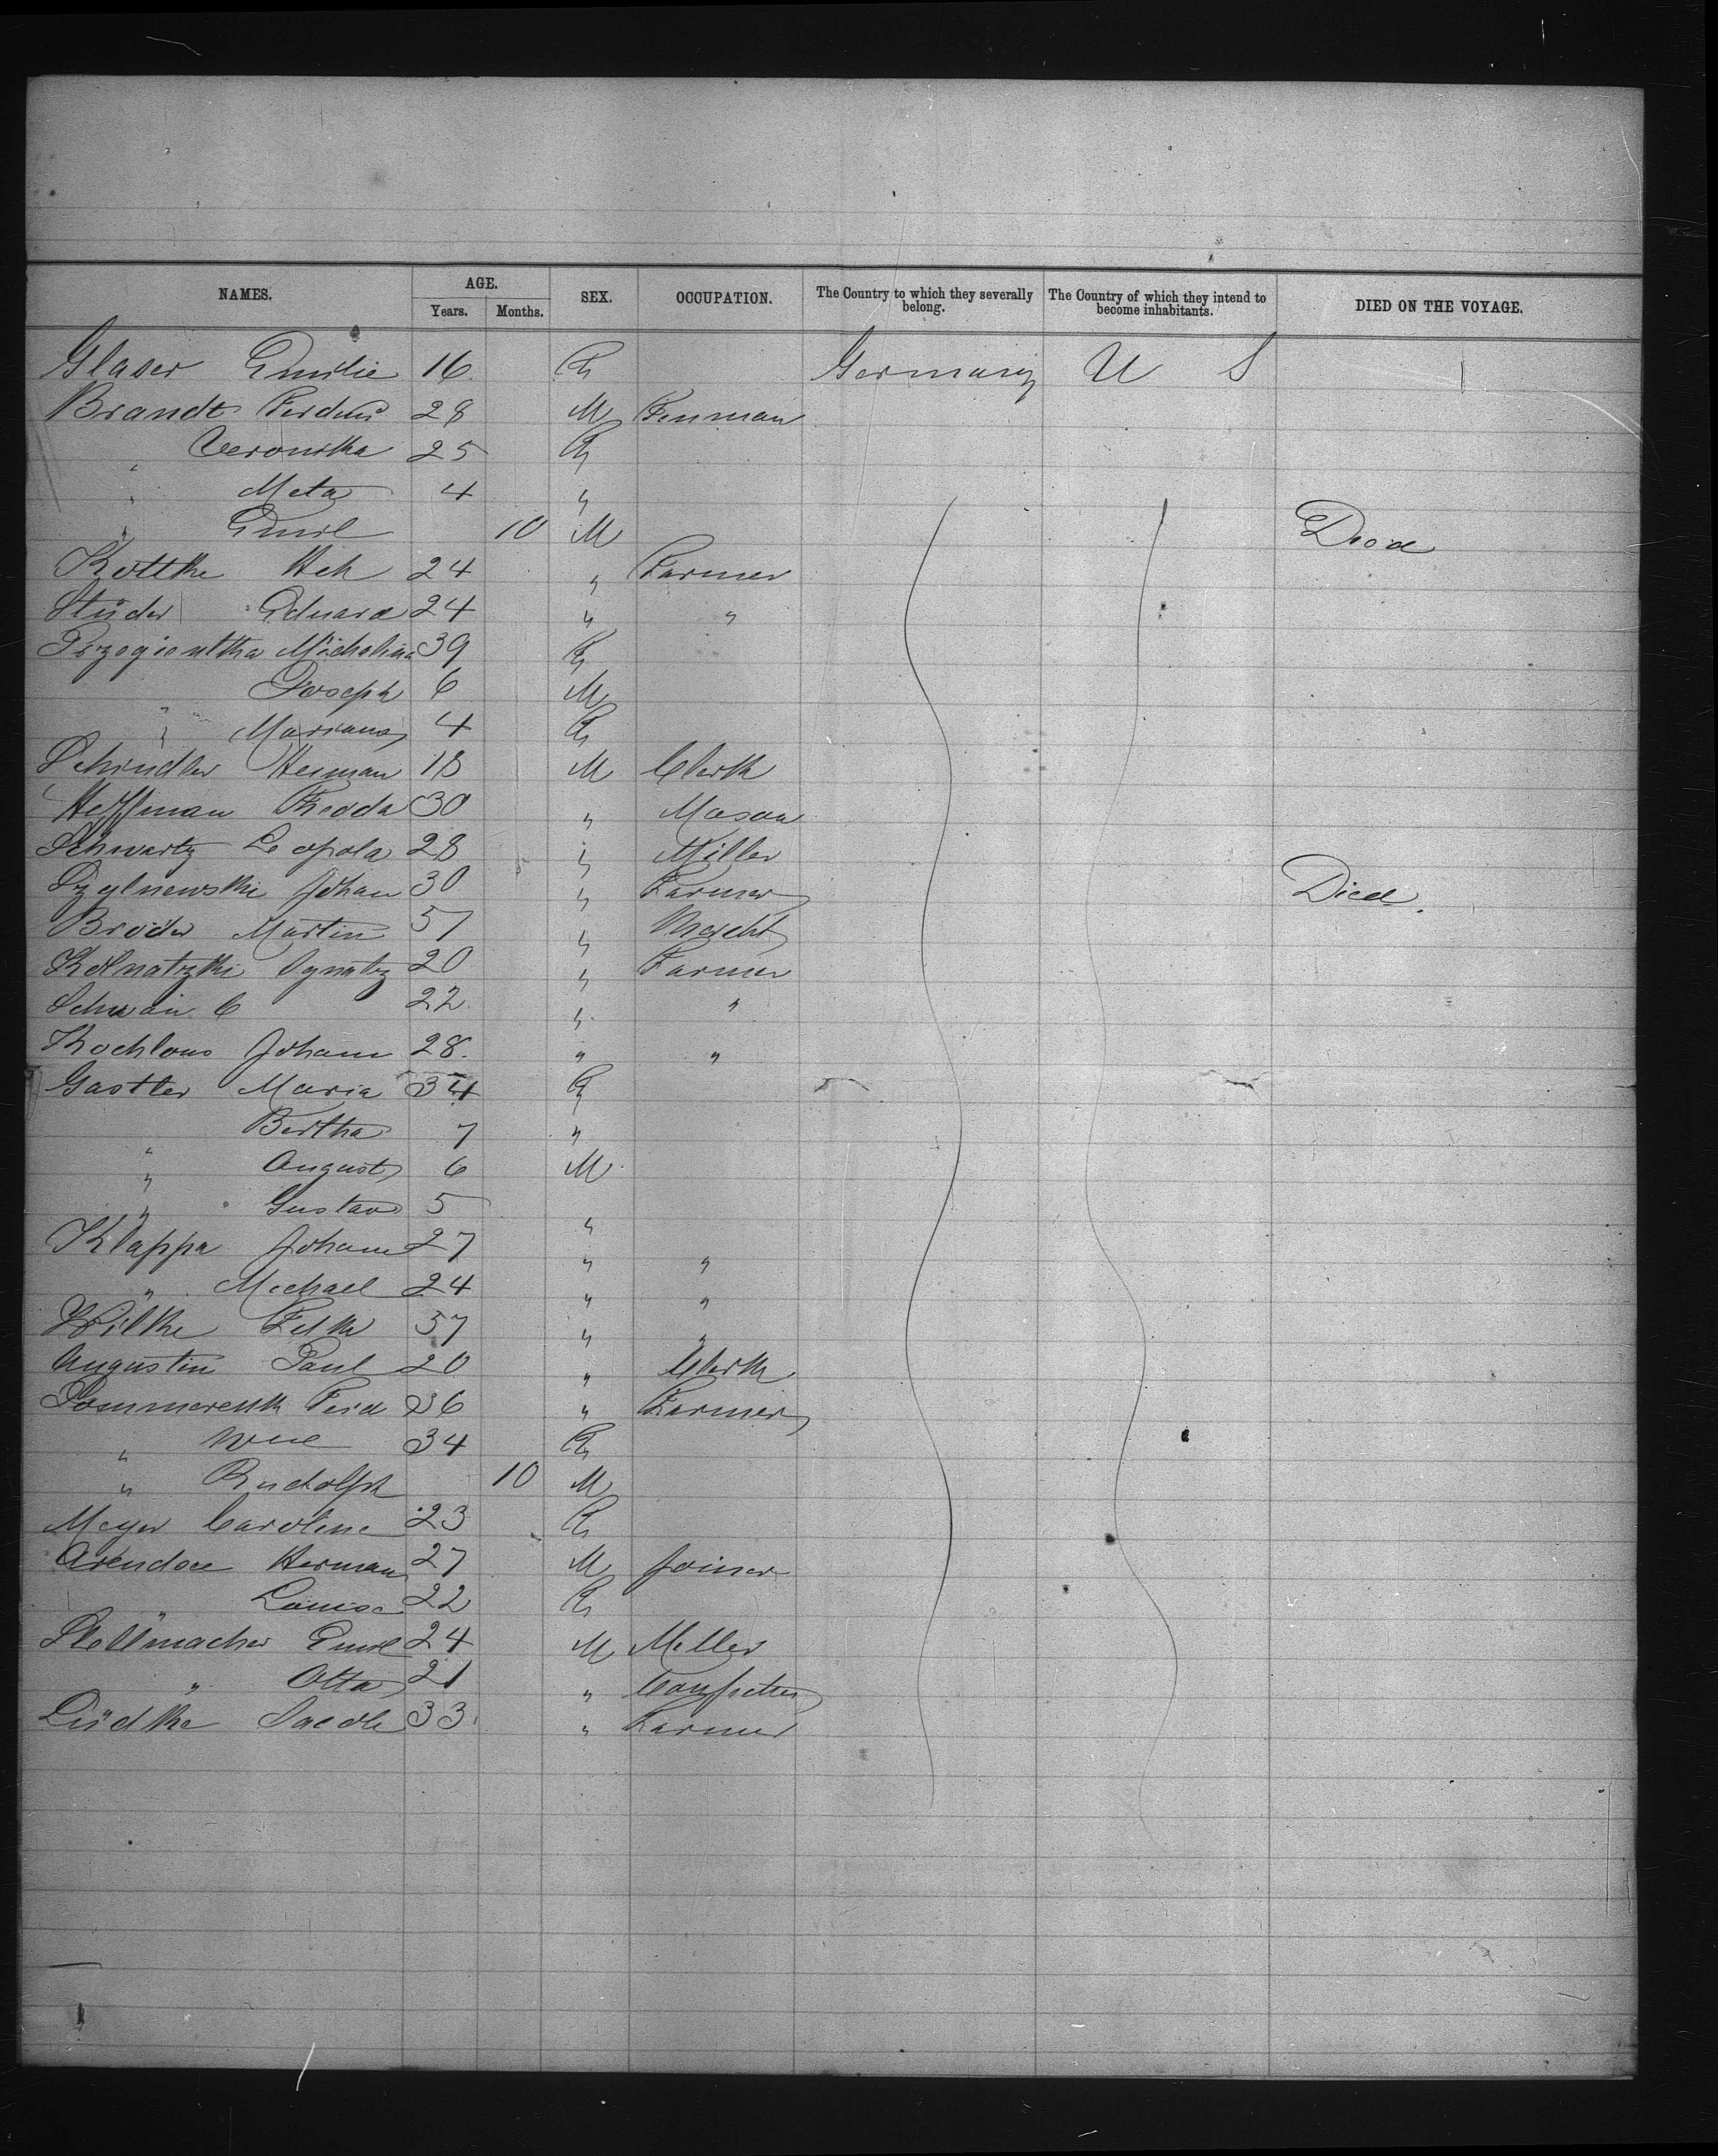 NAMES. AGE. SEX. OCCUPATION. The Country to which they severally belong. The Country of which they intend to become inhabitants. DIED ON THE VOYAGE.
Years. Months.
Glaser Emilie 16 F Germany U S
Brandt 28 M
" Veronika 25 F
" Meta 4 "
" Emil 10 M Died
Kottke Hch 24 " Farmer
Stüder Eduard 24 " "
Michalina 39 F
Joseph 6 M
" Mariana 4 F
Schindler Herman 18 M Clerk
Hoffman 30 " Mason
Schwartz Leopold 28 " Miller
Johan 30 " Farmer Died.
Bröder Martin 57 "
Kolnatzki Ignatz 20 " Farmer
C 22 " "
Johann 28. " "
Gastler Maria 34 F
" Bertha 7 "
" August 6 M
" Gustav 5 "
Klappa Johann 27 " "
" Michael 24 " "
Wilke 57 " "
Augustin Paul 20 " Clerk
Ferd 36 " Farmer
" 34 F
" Rudolph 10 M
Meyer Caroline 23 F
Herman 27 M Joiner
" Louise 22 F
Stellmacher Emil 24 M Miller
" Otto 21 "
Lüdke Jacob 33 " Farmer